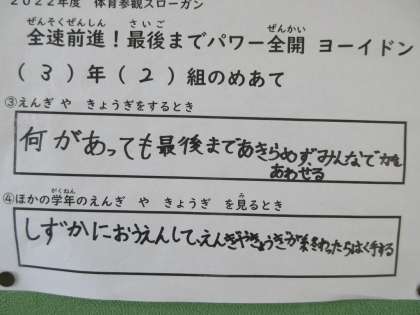 2022年度 体育参観スローガン
全速前進！最後までパワー全開 ヨーイドン
(3)年(2)組のめあて
③えんぎ や きょうぎをするとき
何があっても最後まであきらめず、みんなで力を
あわせる
④ほかの学年のえんぎ や きょうぎ を見るとき
しずかにおうえんして、えんぎやきょうぎが終わったらはく手する